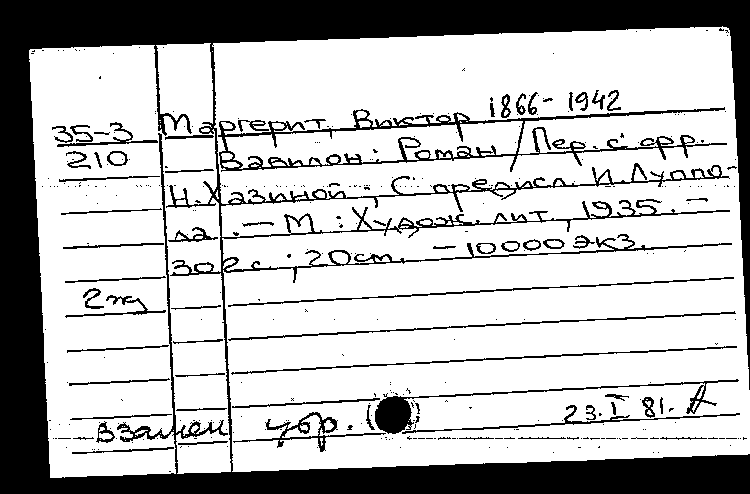 35-3 Маргерит, Виктор 1866-1942
210 Вавилон: Роман / Пер. с фр.
Н. Хазиной; С предисл. И. Луппо-
ла. — М.: Худож. лит., 1935. —
302 с.; 20 см. — 10000 экз.
взамен убр. 23.I 81.